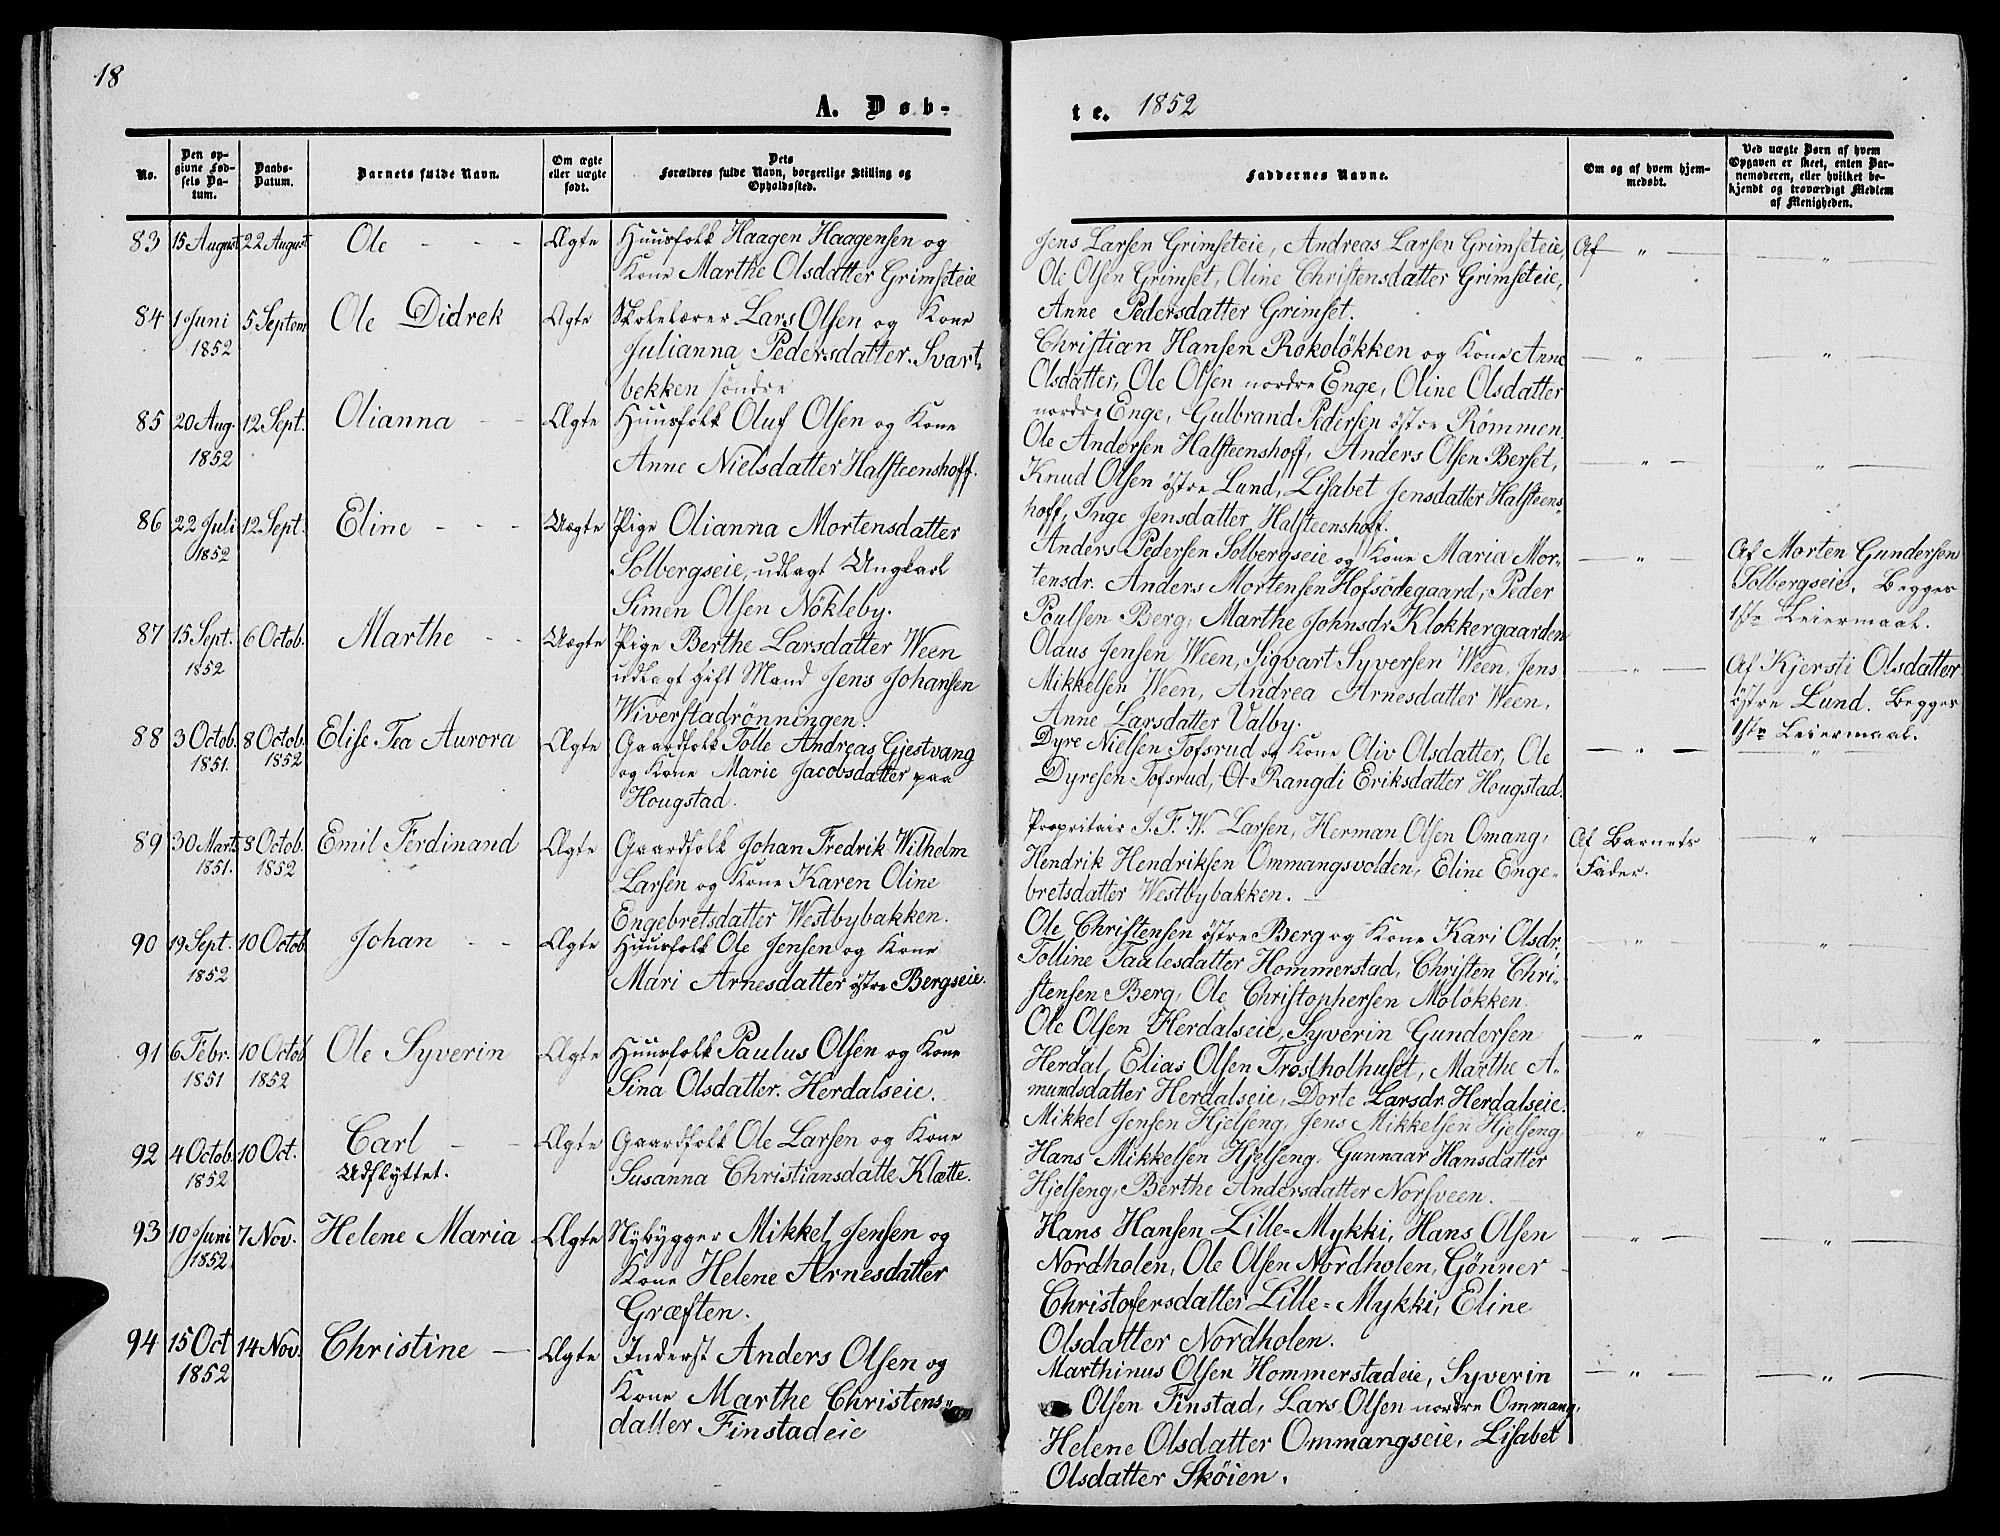 18
A. Døb-
te. 1852
No.
Den op-
givne Fød-
sels Da-
tum.
Daabs-
Datum.
Barnets fulde Navn.
Om ægte
eller uægte
født.
Dets
Forældres fulde Navn, borgerlige Stilling og
Opholdssted.
Faddernes Navne.
Om og af hvem hjem-
medøbt.
Ved uægte Børn af hvem
Opgaven er skeet, enten Bar-
nemoderen, eller hvilket be-
kjendt og troværdigt Medlem
af Menigheden.
83 15 August 22 August Ole - - - Ægte Huusfolk Haagen Haagensen og
Kone Marthe Olsdatter Grimseteie
Jens Larsen Grimseteie, Andreas Larsen Grimseteie,
Ole Olsen Grimset, Oline Christensdatter Grimseteie,
Anne Pedersdatter Grimset.
Af — " —
— " —
84 1 Juni 5 Septem Ole Didrek Ægte Skolelærer Lars Olsen og Kone
1852
Julianna Pedersdatter. Svart-
bekken söndre
Christian Hansen Rokoløkken og Kone Anne
Olsdatter, Ole Olsen nordre Enge, Oline Olsdatter
nordre Enge, Gulbrand Pedersen östre Römmen.
— " —
"
85 20 Aug. 12 Sept. Olianna - - Ægte Huusfolk Oluf Olsen og Kone
1852
Anne Nielsdatter Halsteenshoff.
Ole Andersen Halsteenshoff, Anders Olsen Berset,
Knud Olsen östre Lund, Lisabet Jensdatter Halsteens-
hoff, Inge Jensdatter Halsteenshoff.
— " —
" —
86 22 Juli 12 Sept. Eline - - - Uægte Pige Olianna Mortensdatter
1852
Solbergseie, udlagt Ungkarl
Simen Olsen Nökleby.
Anders Pedersen Solbergseie og Kone Maria Mor-
tensdr. Anders Mortensen Hofsödegaard, Peder
Poulsen Berg, Marthe Johnsdr. Klokkergaarden
— " —
Af Morten Gundersen
Solbergseie. Begges
1ste Leiermaal.
87 15 Sept. 6 Octob. Marthe - - Uægte Pige Berthe Larsdatter Ween
1852
udlagt gift Mand Jens Johansen
Wiverstadrönningen.
Olaus Jensen Ween, Sigvart Syversen Ween, Jens
Mikkelsen Ween, Andrea Arnesdatter Ween,
Anne Larsdatter Valby.
— " —
Af Kjersti Olsdatter
östre Lund. Begges
1ste Leiermaal.
88 3 Octob. 8 Octob. Elise Tea Aurora Ægte Gaardfolk Tolle Andreas Gjestvang
1851. 1852
og Kone Marie Jacobsdatter paa
Hougstad.
Dyre Nielsen Tofsrud og Kone Oliv Olsdatter, Ole
Dyresen Tofsrud, Ot Rangdi Eriksdatter Hougstad.
— " —
"
89 30 Mart. 8 Octob. Emil Ferdinand Ægte Gaardfolk Johan Fredrik Wilhelm
1851. 1852
Larsen og Kone Karen Oline
Engebretsdatter Westbybakken.
Propritair J. F. W. Larsen, Herman Olsen Omang,
Hendrik Hendriksen Ommangsvolden, Eline Enge-
bretsdatter Westbybakken.
Af Barnets
Fader.
— "
90 19 Sept. 10 Octob Johan - - Ægte Huusfolk Ole Jensen og Kone
1852
Mari Arnesdatter östre Bergseie.
Ole Christensen östre Berg og Kone Kari Olsdr,
Tolline Taalesdatter Hommerstad, Christen Chri-
stensen Berg, Ole Christophersen Moløkken.
— " —
— " —
91 6 Febr. 10 Octob Ole Syverin Ægte Huusfolk Paulus Olsen og Kone
1851 1852
Sina Olsdatter. Herdalseie.
Ole Olsen Herdalseie, Syverin Gundersen
Herdal, Elias Olsen Trostholhuset, Marthe A-
mundsdatter Herdalseie, Dorte Larsdr. Herdalseie.
— "
"
92 4 Octob. 10 Oct. Carl - - Ægte Gaardfolk Ole Larsen og Kone
1852
Udflyttet.
Susanna Christiansdatte Klætte.
Mikkel Jensen Hjelseng, Jens Mikkelsen Hjelseng,
Hans Mikkelsen Hjelseng, Gunnaar Hansdatter
Hjelseng, Berthe Andersdatter Norsveen.
"
" —
93 10 Juni 7 Nov. Helene Maria Ægte Nybygger Mikkel Jensen og
1852.
Kone Helene Arnesdatter
Græften.
Hans Hansen Lille-Mykki, Hans Olsen
Nordholen, Ole Olsen Nordholen, Gönner
Christofersdatter Lille-Mykki, Eline
Olsdatter Nordholen.
— " —
— " —
94 15 Oct 14 Nov. Christine — Ægte Inderst Anders Olsen og
1852
Kone Marthe Christens-
datter Finstadeie
Marthinus Olsen Hommerstadeie, Syverin
Olsen Finstad, Lars Olsen nordre Ommang,
Helene Olsdatter Ommangseie, Lisabet
Olsdatter Sköien.
— " —
— " —